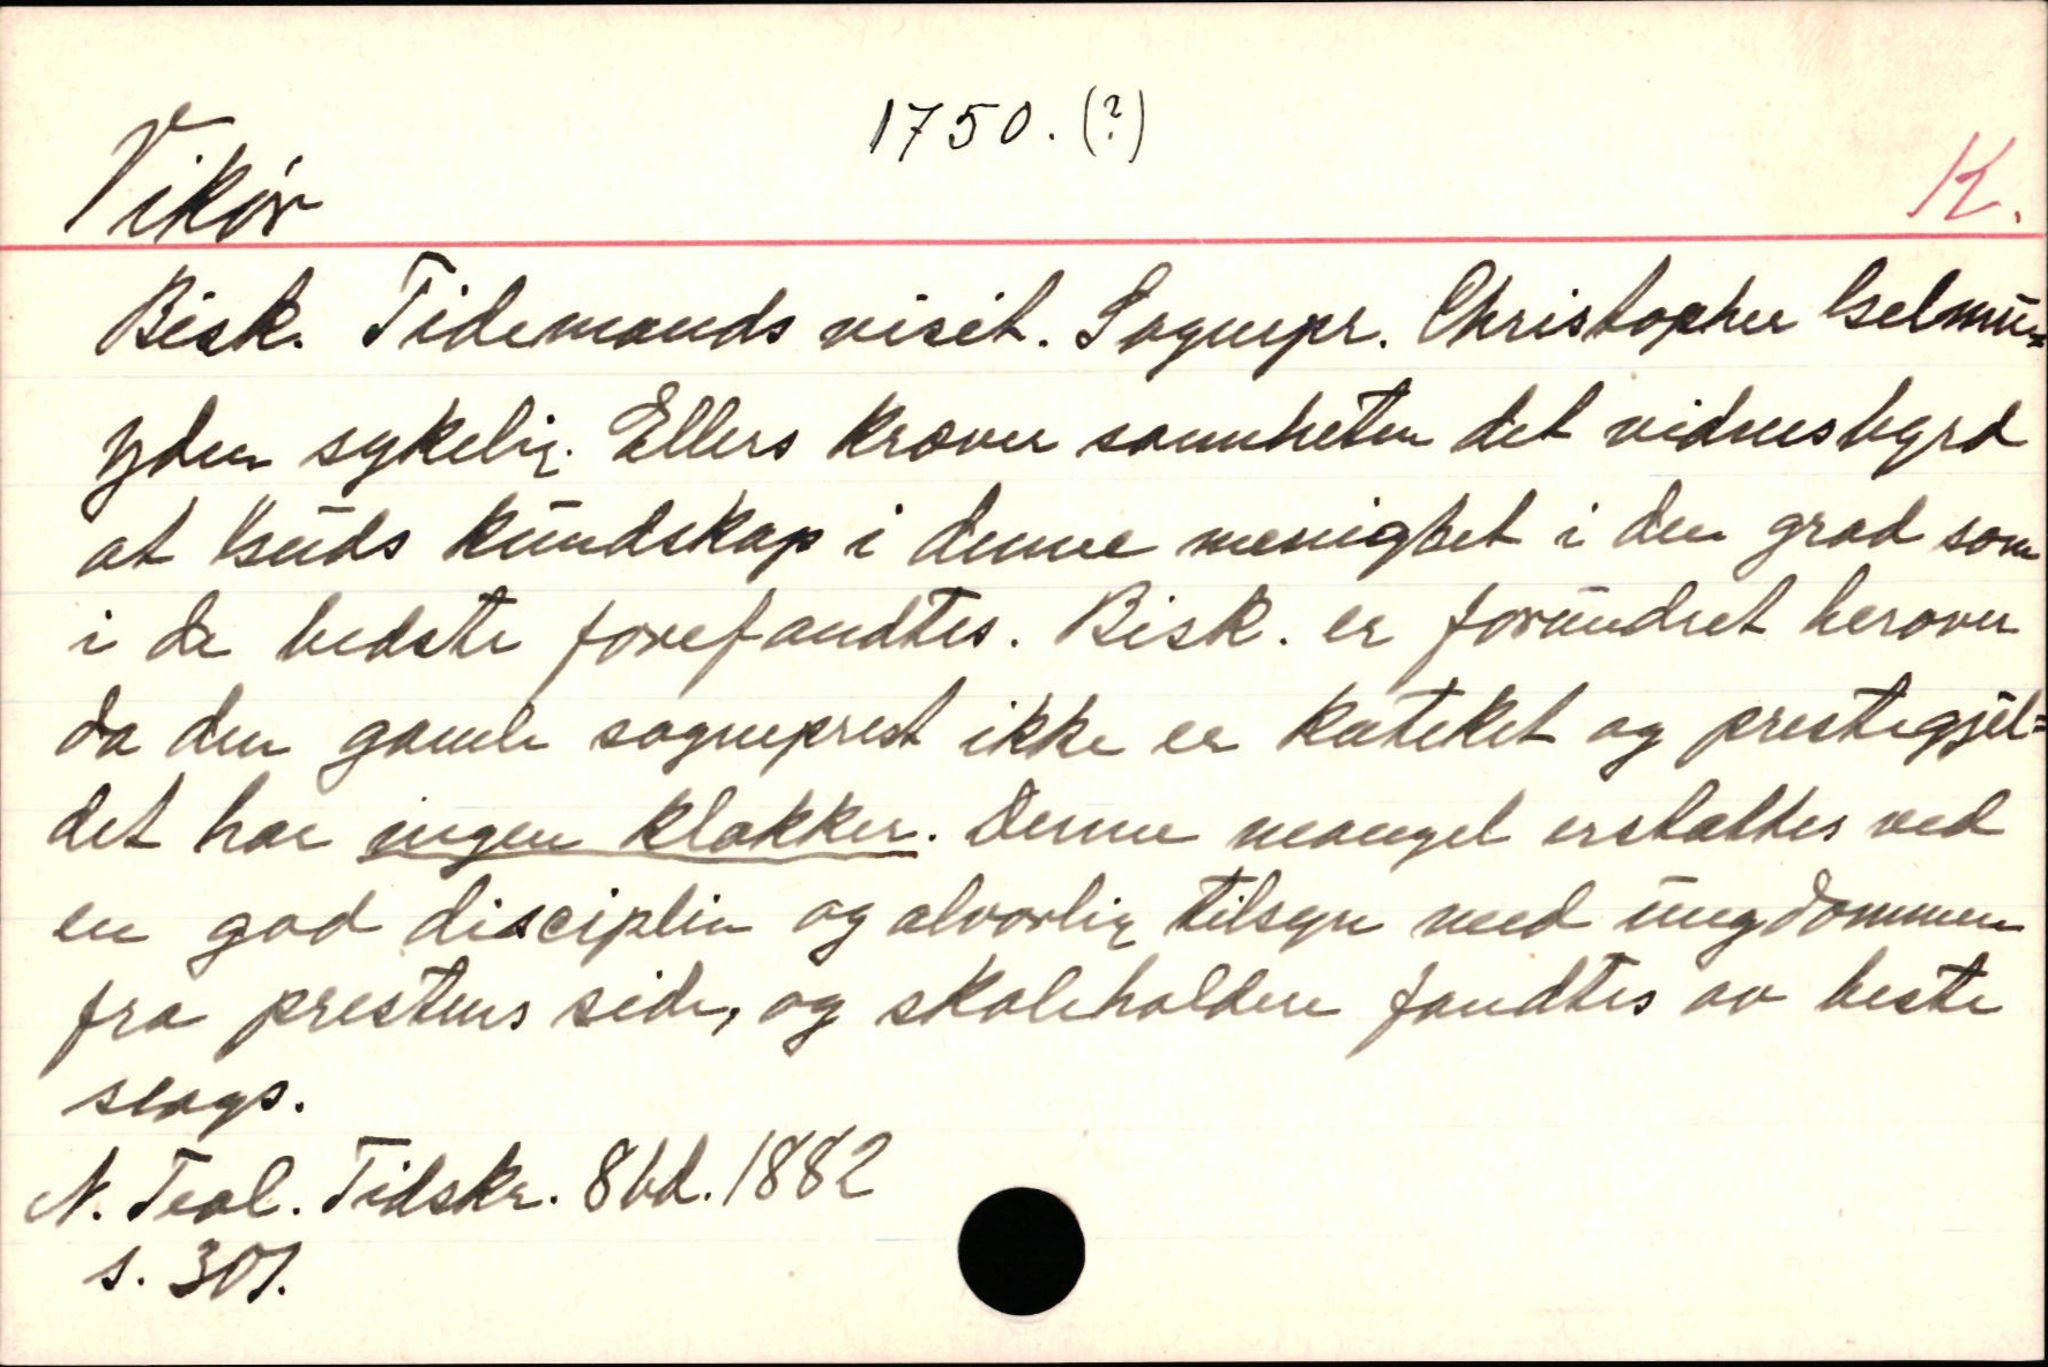 1750. (?)
Vikør
K.
Bisk. Tidemands visit. Sognepr. Christopher Gelmuy=
yden sykelig. Ellers kræver sannheten det vidnesbyrd
at Guds kundskap i denne menighet i den grad som
i de bedste forefandtes. Bisk. er forundret herover
da den gamle sogneprest ikke er kateket og prestegjel=
det har ingen klokker. Denne mangel erstattes ved
en god disciplin og alvorlig tilsyn med ungdommen
fra prestens side, og skoleholdere fandtes av beste
slags.
N. Teol. Tidskr. 8 bd. 1882
s. 301.